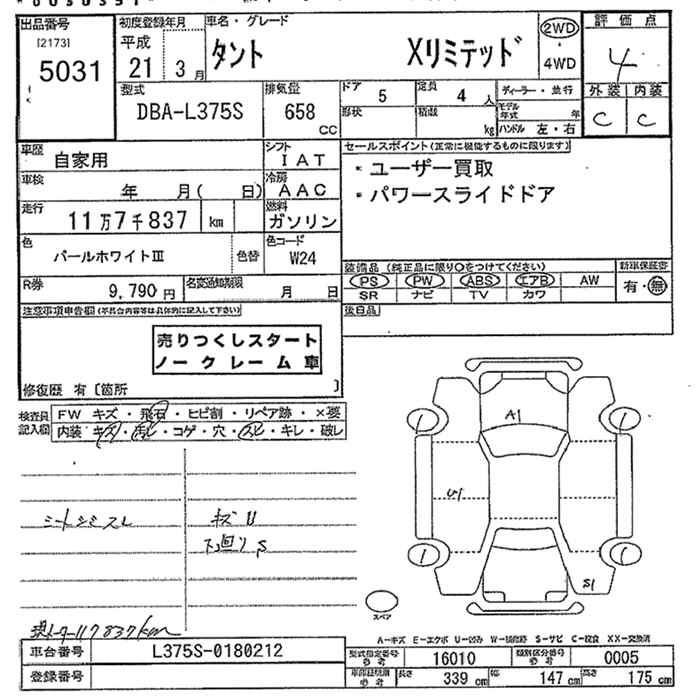 出品番号 初度登録年月 車名・グレード 評価点
[2173] 5031 平成 21 3月 タント Xリミテッド 2WD・4WD 4
型式 排気量 ドア 5 定員 4人 ディーラー・並行 外装 内装
DBA-L375S 658cc 形状 積載 kg モデル年式 年 C C
ハンドル 左・右
車歴 自家用 シフト IAT セールスポイント(正常に機能するものに限ります)
車検 年 月( 日) 冷房 AAC ・ユーザー買取
走行 11万7千837 km 燃料 ガソリン ・パワースライドドア
色 パールホワイトIII 色替 色コード W24
装備品(純正品に限り○をつけてください) 新車保証書
R券 9,790円 名変通知期限 月 日 PS PW ABS エアB AW 有・無
SR ナビ TV カワ
注意事項申告欄(不具合内容は具体的に記入して下さい) 後日品
売りつくしスタート
ノークレーム車
修復歴 有〔箇所 〕
検査員記入欄 FW キズ・飛石・ヒビ割・リペア跡・×要
内装 キズ・汚レ・コゲ・穴・スレ・キレ・破レ
A1
U1
シートシミスレ キズU
下廻りS
S1
スペア
117837km
A-キズ E-エクボ U-凹み W-補修跡 S-サビ C-腐食 XX-交換済
車台番号 L375S-0180212 型式指定番号 参考 16010 類別区分番号 参考 0005
登録番号 長さ 339cm 幅 147cm 高さ 175cm